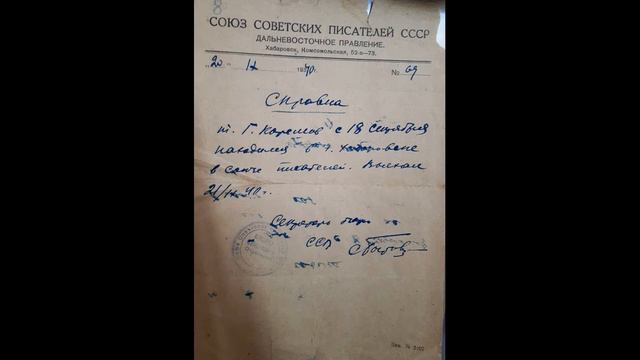 СОЮЗ СОВЕТСКИХ ПИСАТЕЛЕЙ СССР
ДАЛЬНЕВОСТОЧНОЕ ПРАВЛЕНИЕ.
Хабаровск, Комсомольская, 52-а—73.
„20“ IX 1940г. № 69
Справка
т. Г. с 18 сентября
находился в г. Хабаровске
в союзе писателей. Выехал
21/IX 40 г.
Секретарь бюро
ССП